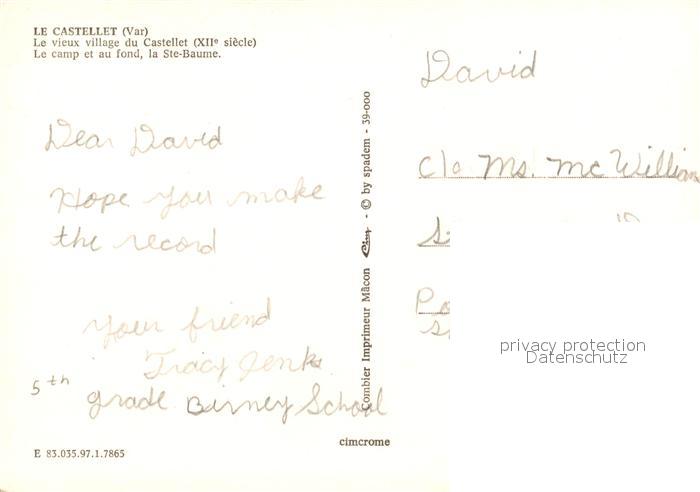 LE CASTELLET (Var)
Le vieux village du Castellet (XIIe siècle)
Le camp et au fond, la Ste-Baume.
Dear David
Hope you make
the record
Your friend
Tracy Jenks
5th
grade Birney School
E 83.035.97.1.7865
Combier Imprimeur Mâcon Cim - © by spadem - 39-000
cimcrome
David
c/o Ms. McWilliams
privacy protection
Datenschutz